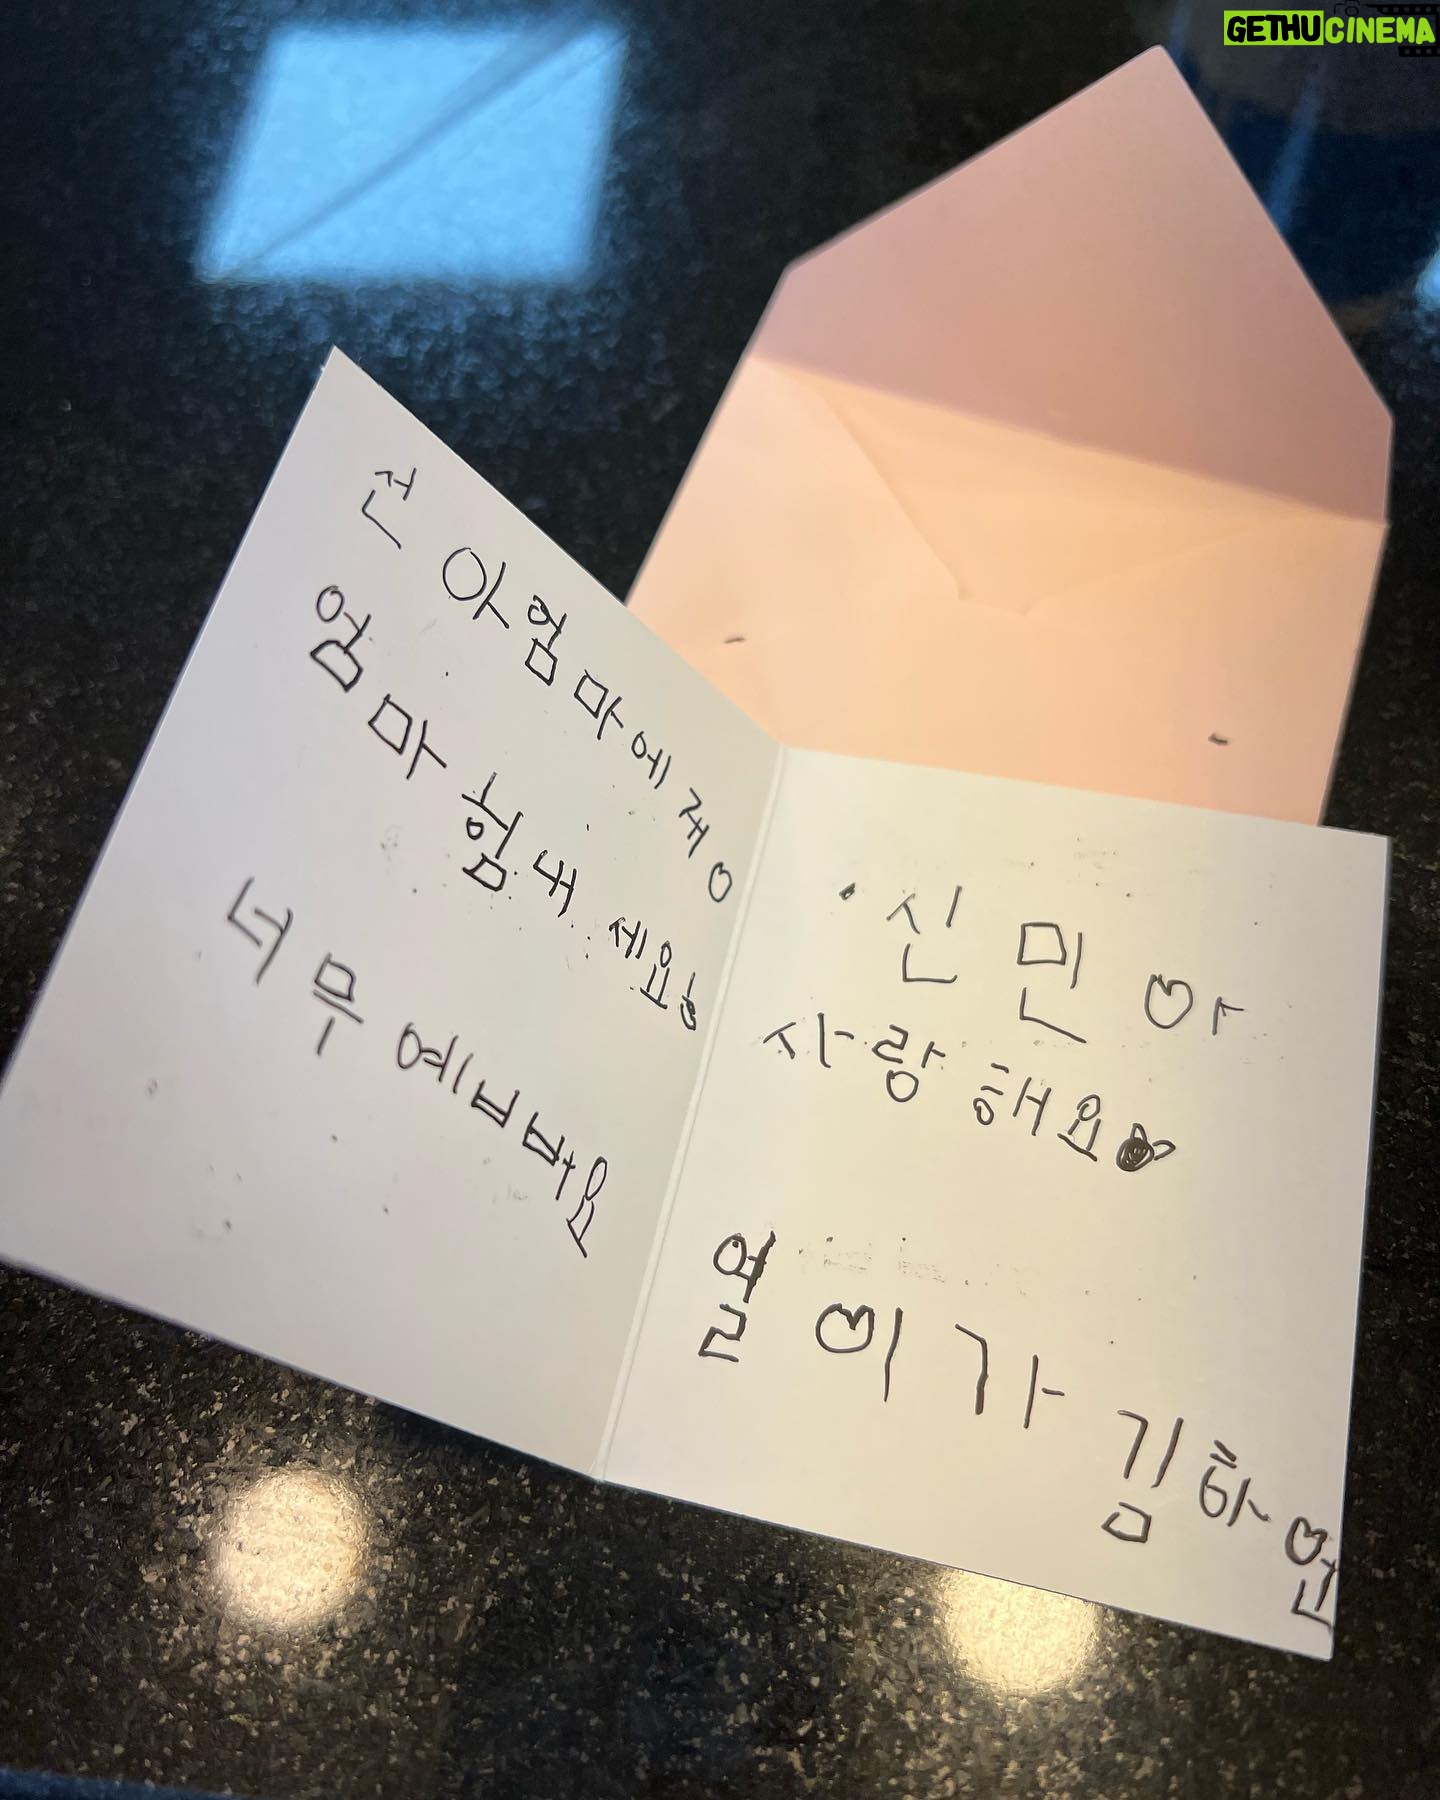 GETHUCINEMA
선아엄마에게
엄마힘내세요
너무예뻐요
신민아
사랑해요
열이가 김하연